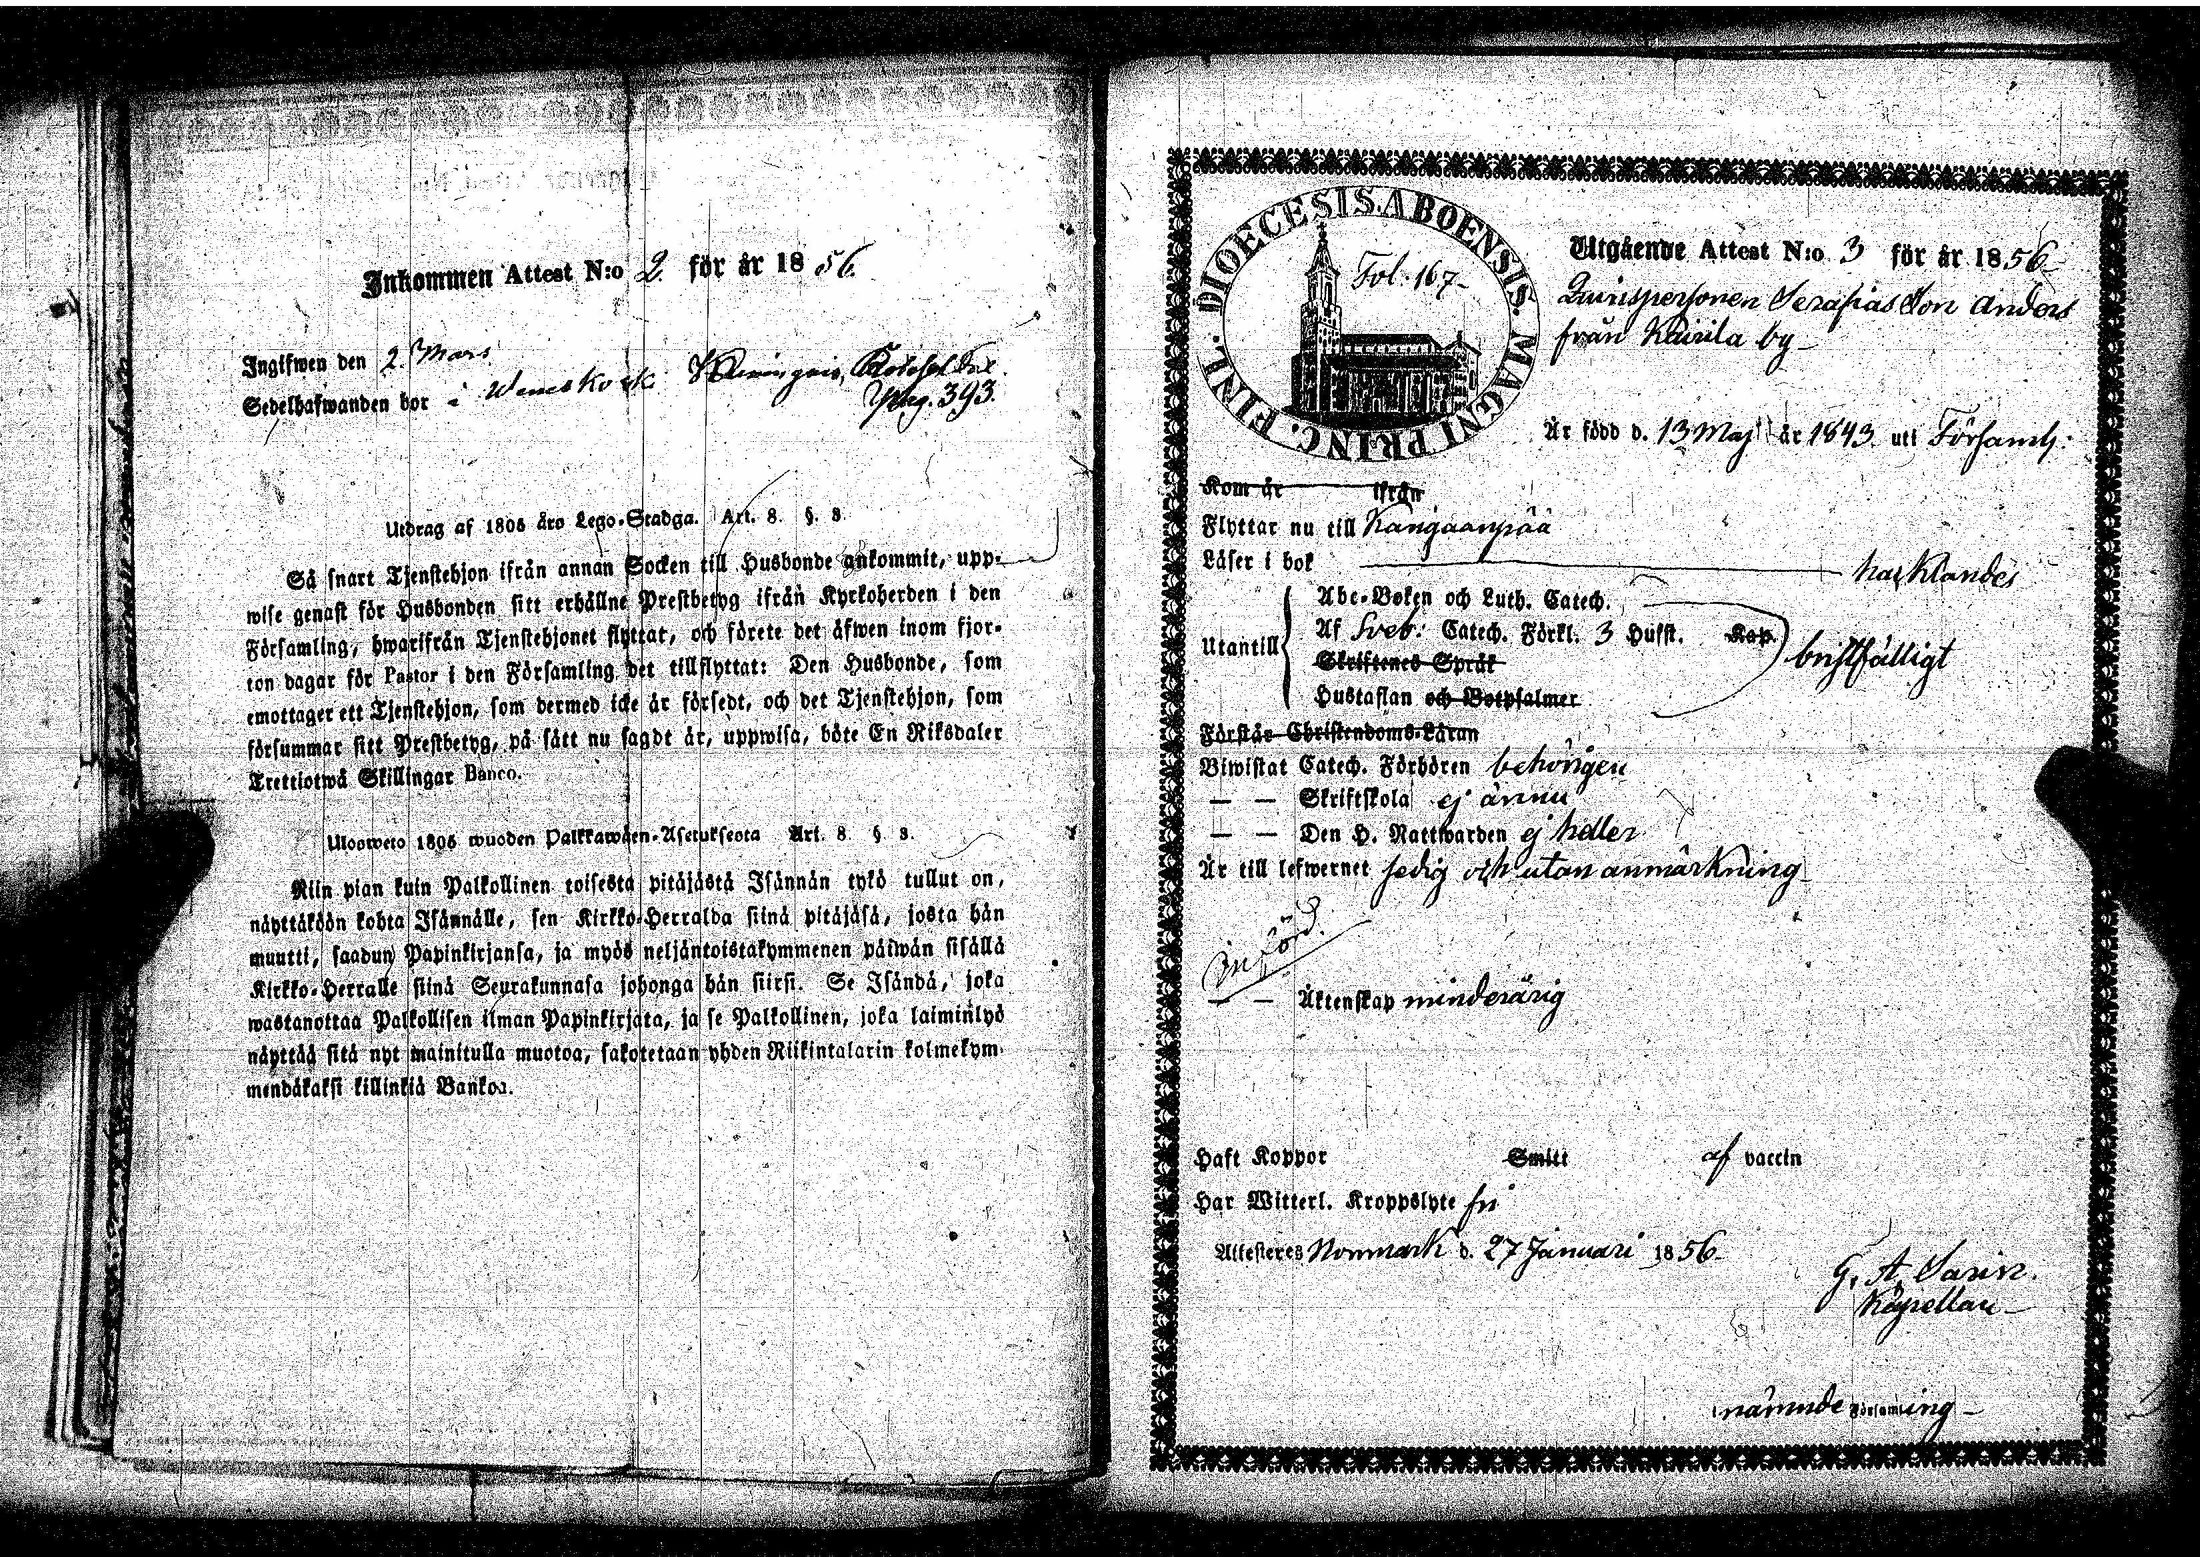 Inkommen Attest N:o 2. för år 1856.
Ingifwen den 2. Mars
Sedelhafwanden bor i
Pag. 393.
Utdrag af 1805 års Lego-Stadga. Art. 8. §. 8.
Så snart Tjenstehjon ifrån annan Socken till Husbonde ankommit, upp-
wise genast för Husbonden sitt erhållne Prestbetyg ifrån Kyrkoherden i den
Församling, hwarifrån Tjenstehjonet flyttat, och förete det äfwen inom fjor-
ton dagar för Pastor i den Församling det tillflyttat: Den Husbonde, som
emottager ett Tjenstehjon, som dermed icke är försedt, och det Tjenstehjon, som
försummar sitt Prestbetyg, på sätt nu sagdt är, uppwisa, böte En Riksdaler
Trettiotwå Skillingar Banco.
Ulosweto 1805 wuoden Palkkawäen-Asetuksesta Art. 8. §. 8.
Niin pian kuin Palkollinen toisesta pitäjästä Isännän tykö tullut on,
näyttäköön kohta Isännälle, sen Kirkko-Herralda siinä pitäjäsä, josta hän
muutti, saadun Papinkirjansa, ja myös neljäntoistakymmenen päiwän sisällä
Kirkko-Herralle siinä Seurakunnasa johonga hän siirsi. Se Isändä, joka
wastanottaa Palkollisen ilman Papinkirjata, ja se Palkollinen, joka laiminlyö
näyttää sitä nyt mainitulla muotoa, sakotetaan yhden Riikintalarin kolmekym-
mendäkaksi killinkiä Bankoa.
DIOECESIS ABOENSIS. MAGNI PRINC. FINL.
Fol. 167
Utgående Attest N:o 3 för år 1856
Serafias Son Anders
från Kairila by
Är född d. 13 Maj år 1843 uti Församl.
Kom år ifrån
Flyttar nu till Kangaanpää
Läser i bok harklandes
Utantill
Abc-Boken och Luth. Catech.
Af Sveb. Catech. Förkl. 3 Hufst. Kap.
bristfälligt
Skriftenes Språk
Hustaflan och Botpsalmer
Förstår Christendoms-Läran
Biwistat Catech. Förhören behörigen
— — Skriftskola ej ännu
— — Den H. Nattwarden ej heller
Är till lefwernet sedig och utan anmärkning
Införd.
— — Äktenskap minderårig
Haft Koppor Smitt af vaccin
Har Witterl. Kroppslyte fri
Attesteres Norrmark d. 27 Januari 1856
G. A.
Kapellan
nämnde Församling